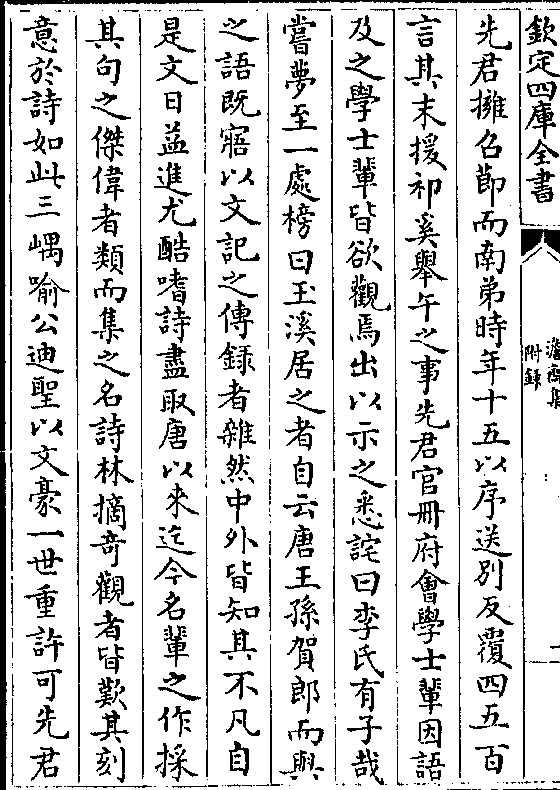 欽定四庫全書
附録
先君擁召節而南弟時年十五以序送别反覆四五百
言其末援祁奚舉午之事先君官冊府會學士輩因語
及之學士輩皆欲觀焉出以示之悉詫曰李氏有子哉
嘗夢至一處榜曰玉溪居之者自云唐王孫賀郎而與
之語既寤以文記之傳録者雜然中外皆知其不凡自
是文日益進尤酷嗜詩盡取唐以來迄今名輩之作採
其句之傑偉者類而集之名詩林摘奇觀者皆歎其刻
意於詩如此三嵎喻公迪聖以文豪一世重許可先君